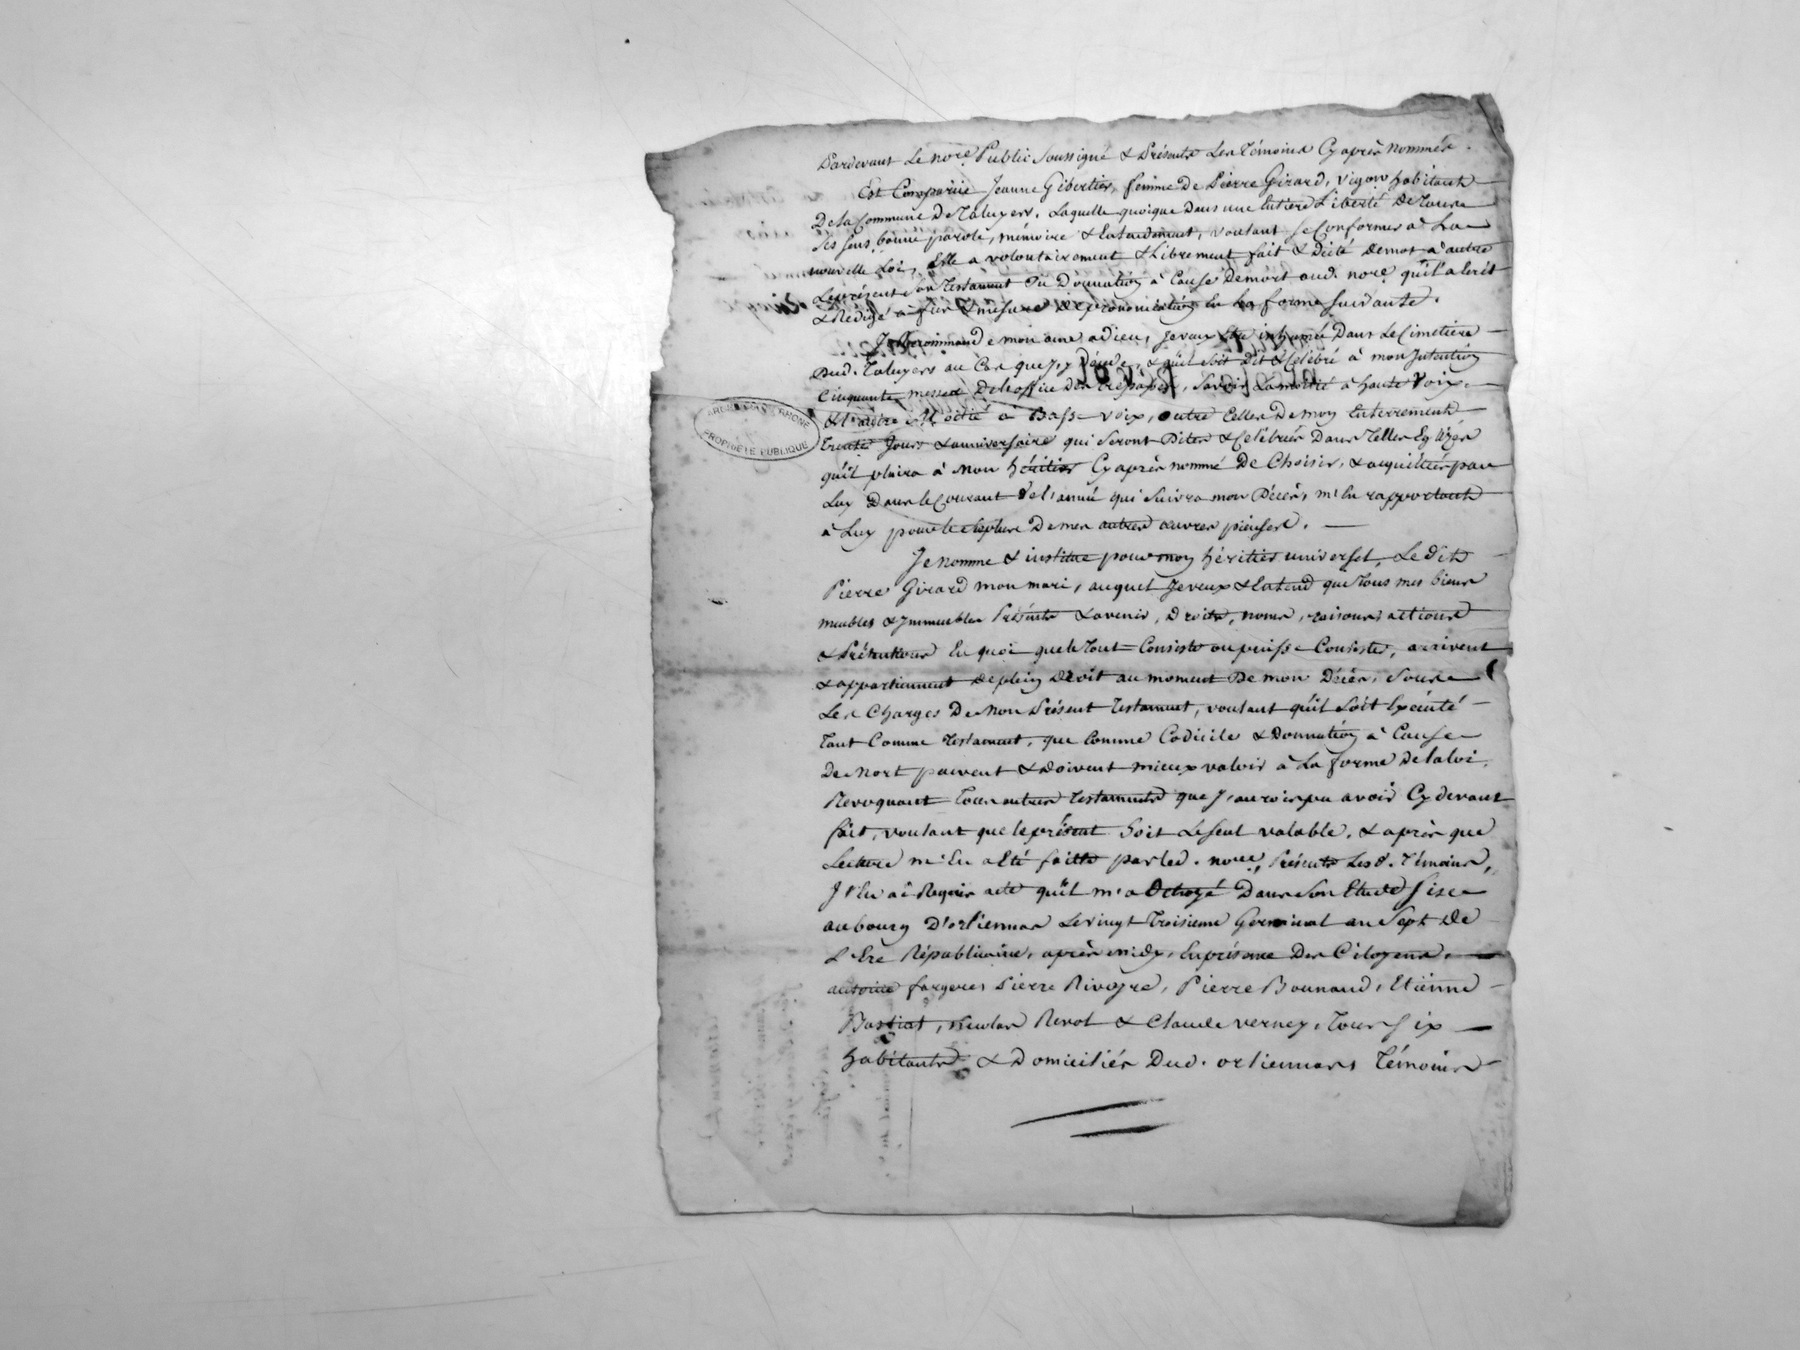 Pardevant Le nore. Public Soussigné & Présents Les Témoins Cyaprès nommés.
Est Comparüe Jeanne Gibertier, femme De Pierre Girard, vigon habitants
De la Commune De Taluyers. Laquelle quoique Dans une Entiere Liberté De Tous
Ses sens, bonne parole, mémoire & Entendement, voulant se Conformer à La
nouvelle Loi, Elle a volontairement & Librement fait & Dicté Demot à autre
Leprésent son Testament Ou Donnation à Cause Demort aud. nore. qu'il a Ecrit
& Rédigé à fur & mesure de prononciation En La forme suivante.
Je Recommande mon ame à Dieu, Je veux Etre inhumée Dans Le Cimetière
Dud. Taluyers au Cas que J'y Décede, & qu'il soit Dit & Célébré à mon Intention
Cinquante messes De L'office Des trépassés, Savoir La moitié à haute Voix
& L'autre Moitié à Basse voix, outre Celles De mon Enterrement
Trente Jours & anniversaire qui Seront Dites & Celébrées Dans Telles Eglises
qu'il plaira à Mon héritier Cyaprès nommé De Choisir, & acquittées par
Luy Dans le Courant de l'année qui Suivra mon Décès, m'En rapportant
à Luy pour le Surplus De mes autres œuvres pieuses.
Je Nomme & institue pour mon héritier universel, Le dit
Pierre Girard mon mari, auquel Je veux & Entend que Tous mes biens
meubles & Immeubles Présents & avenir, Droits, noms, raisons, actions
& Prétentions En quoi que le Tout Consiste ou puisse Consister, arrivent
& appartiennent de plein Droit au moment De mon Décès, Sous
Les Charges De Mon Présent Testament, voulant qu'il Soit Exécuté
Tant Comme Testament, que Comme Codicile & Donnation à Cause
de Mort peuvent & doivent mieux valoir à La forme De la loi,
Revoquant Tous autres Testaments que J'aurois pu avoir Cy devant
fait, voulant que le présent Soit Le seul valable, & après que
Lecture m'En a Eté faitte par led. nore., Présents Lesd. Témoins,
J'En ai Requis acte qu'il m'a Octroyé Dans Son Etude Sise
au bourg D'orliennas Le vingt Troisieme Germinal an Sept de
L'Ere Républicaine, après midy, En présence Des Citoyens
antoine fargeres Pierre Rivoyre, Pierre Bounaud, Etienne
Bastiat, nicolas Revol & Claude verney, Tous Six
habitants & Domiciliés Dud. orliennas Témoins
ARCHIVES DU RHONE
PROPRIÉTÉ PUBLIQUE